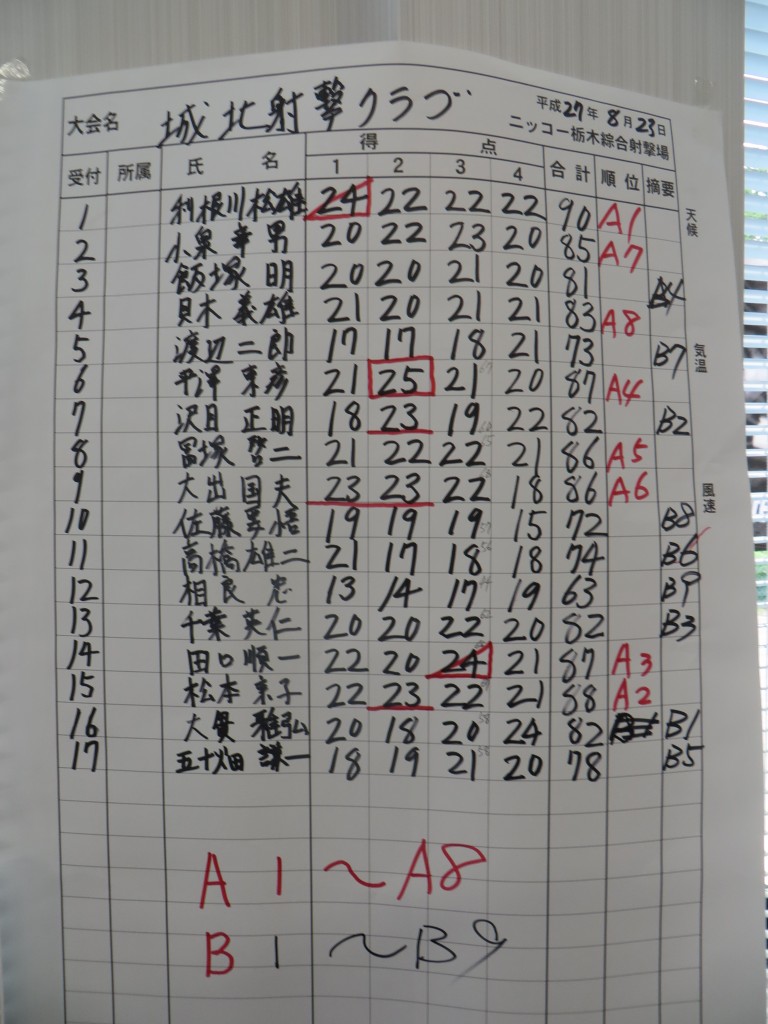 大会名 城北射撃クラブ 平成27年8月23日
ニッコー栃木綜合射撃場
受付 所属 氏名 得点 合計 順位 摘要
1 2 3 4
1 利根川松雄 24 22 22 22 90 A1
2 小泉幸男 20 22 23 20 85 A7
3 飯塚明 20 20 21 20 81 B4
4 貝木義雄 21 20 21 21 83 A8
5 渡辺二郎 17 17 18 21 73 B7
6 平澤 21 25 21 20 87 A4
7 沢目正明 18 23 19 22 82 B2
8 冨塚啓二 21 22 22 21 86 A5
9 大出国夫 23 23 22 18 86 A6
10 佐藤 19 19 19 15 72 B8
11 高橋雄二 21 17 18 18 74 B6
12 相良忠 13 14 17 19 63 B9
13 千葉英仁 20 20 22 20 82 B3
14 田口順一 22 20 24 21 87 A3
15 松本京子 22 23 22 21 88 A2
16 大貫雅弘 20 18 20 24 82 B1
17 五十畑謙一 18 19 21 20 78 B5
天候
気温
風速
A1〜A8
B1〜B9